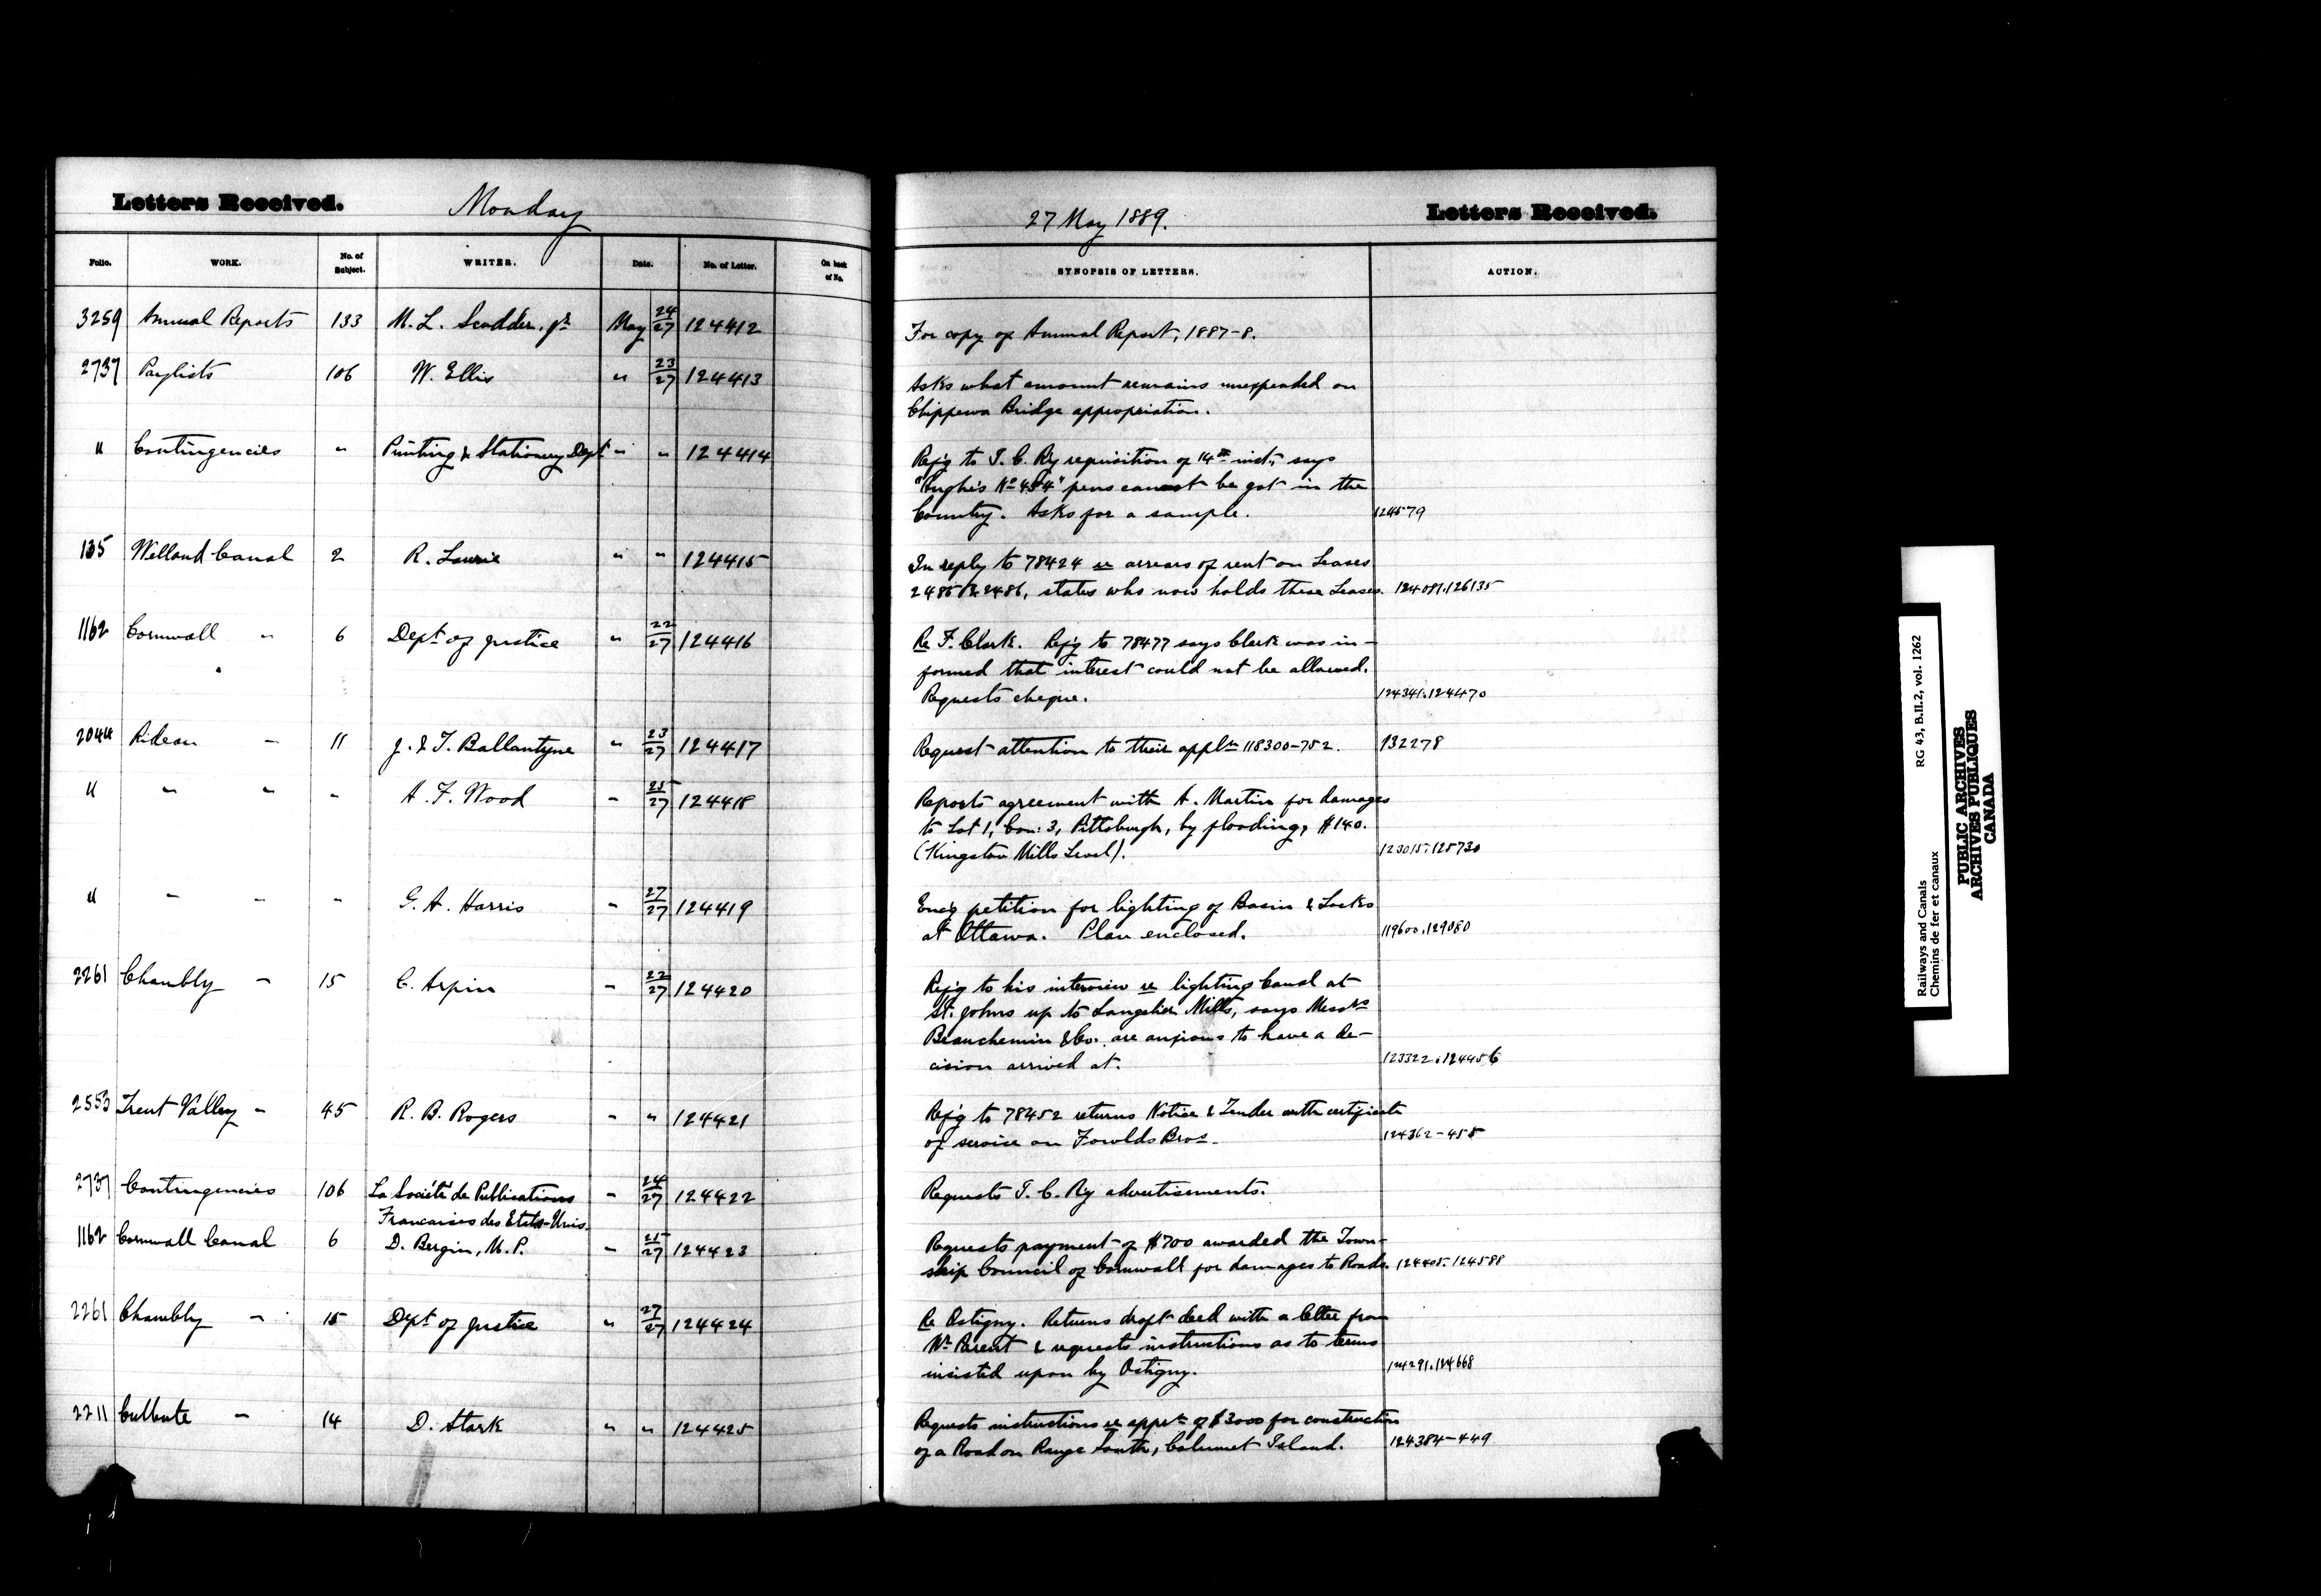 Letters Received.
Monday
Folio.
WORK.
No. of Subject.
WRITER.
Date.
No. of Letter.
On back of No.
3259 Annual Reports 133 M. L. Scudder, jr. May 24/27 124412
2737 Paylists 106 W. Ellis " 23/27 124413
" Contingencies " Printing & Stationery Dept " " 124414
135 Welland Canal 2 R. Laurie " " 124415
1162 Cornwall " 6 Dept of Justice " 22/27 124416
2044 Rideau " 11 J. & T. Ballantyne " 23/27 124417
" " " " A. F. Wood " 25/27 124418
" " " " G. A. Harris " 27/27 124419
2261 Chambly " 15 C. Arpin " 22/27 124420
2553 Trent Valley " 45 R. B. Rogers " " 124421
2737 Contingencies 106 La Société de Publications " 24/27 124422
Francaises des Etats-Unis.
1162 Cornwall Canal 6 D. Bergin, M.P. " 25/27 124423
2261 Chambly " 15 Dept of Justice " 27/27 124424
2211 Culbute " 14 D. Stark " " 124425
27 May 1889.
Letters Received.
SYNOPSIS OF LETTERS.
ACTION.
For copy of Annual Report, 1887-8.
Asks what amount remains unexpended on
Chippewa Bridge appropriation.
Ref'g to I. C. Ry requisition of 14th inst., says
"Hughes No 454" pens cannot be got in the
Country. Asks for a sample. 124579
In reply to 78424 re arrears of rent on Leases
2485 & 2486, states who now holds these Leases. 124081.126135
Re F. Clark. Ref'g to 78477 says Clerk was in-
formed that interest could not be allowed.
Requests cheque. 124341.124470
Request attention to their appln 118300-752. 132278
Reports agreement with A. Martin for damages
to Lot 1, Con: 3, Pittsburgh, by flooding, $140.
(Kingston Mills Level). 123015.125730
Enc'g petition for lighting of Basin & Locks
at Ottawa. Plan enclosed. 119600.129080
Ref'g to his interview re lighting Canal at
St. Johns up to Langelier Mills, says Messrs
Beauchemin & Co. are anxious to have a de-
cision arrived at. 123322.124456
Ref'g to 78452 returns Notice & Tender with certificate
of service on Fowlds Bros. 124362-455
Requests I. C. Ry advertisements.
Requests payment of $700 awarded the Town-
ship Council of Cornwall for damages to Roads. 124405.124588
Re Ostigny. Returns draft deed with a letter from
Mr Parent & requests instructions as to terms
insisted upon by Ostigny. 124291.124668
Requests instructions re apprn of $3000 for construction
of a Road on Range South, Calumet Island. 124384-449
Railways and Canals
Chemins de fer et canaux
RG 43, B.II.2, vol. 1262
PUBLIC ARCHIVES
ARCHIVES PUBLIQUES
CANADA